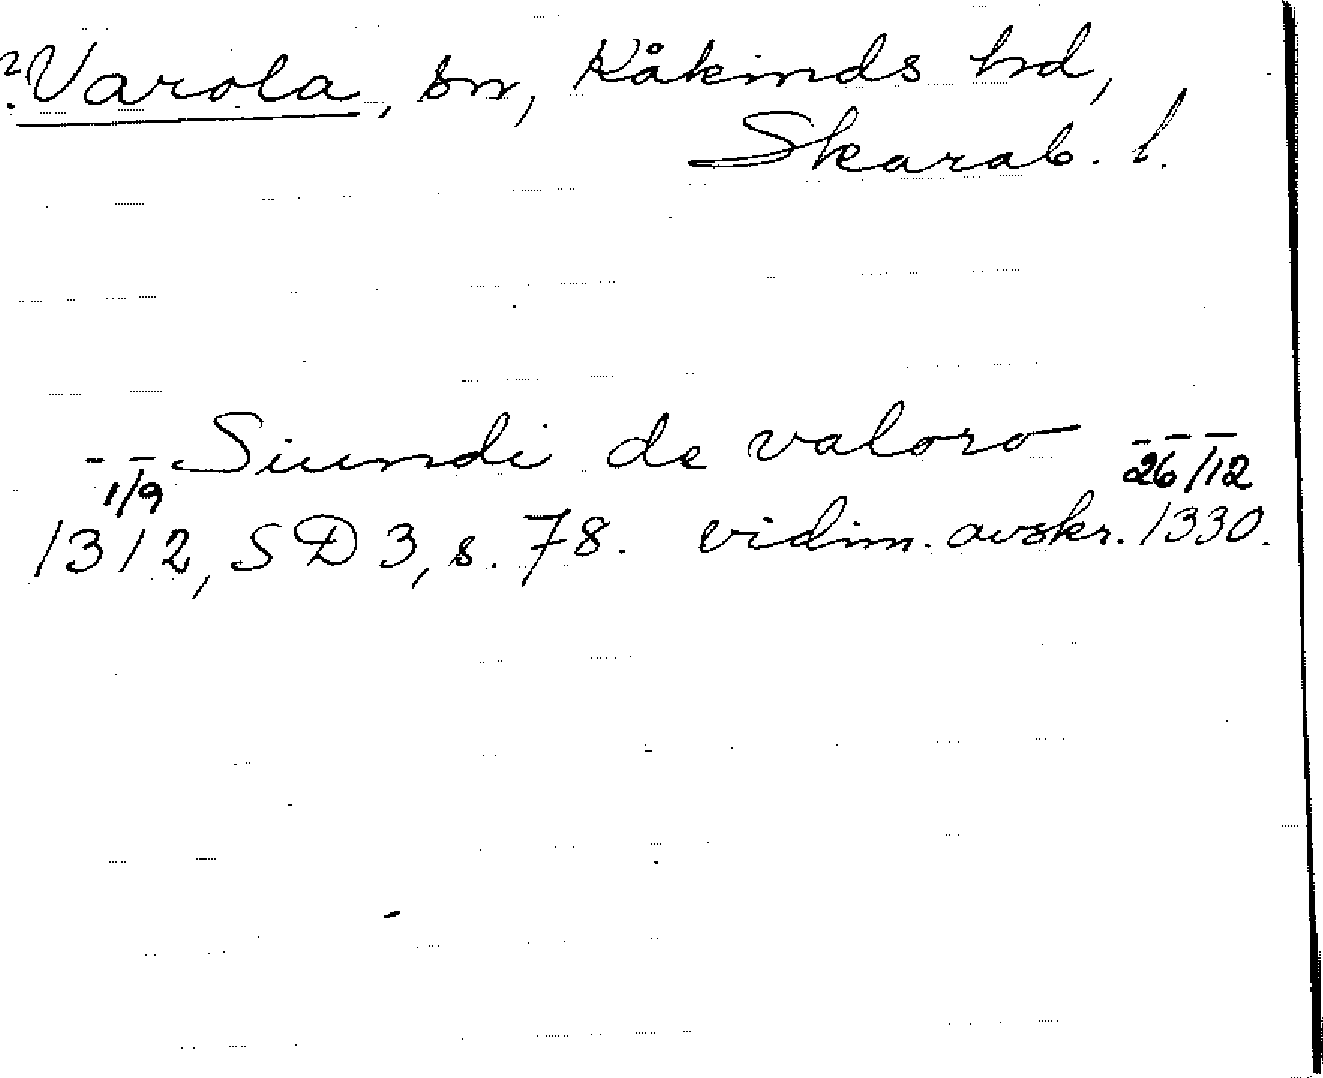 ?Varola, sn, Kåkinds hd,
Skarab. l.
- - Siundi de valoro - - -
1/9 26/12
1312, SD 3, s. 78. vidim. avskr. 1330.